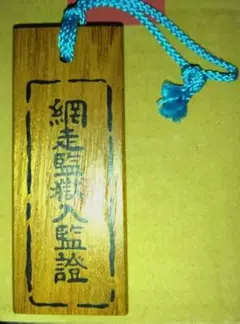 網走監獄入監證